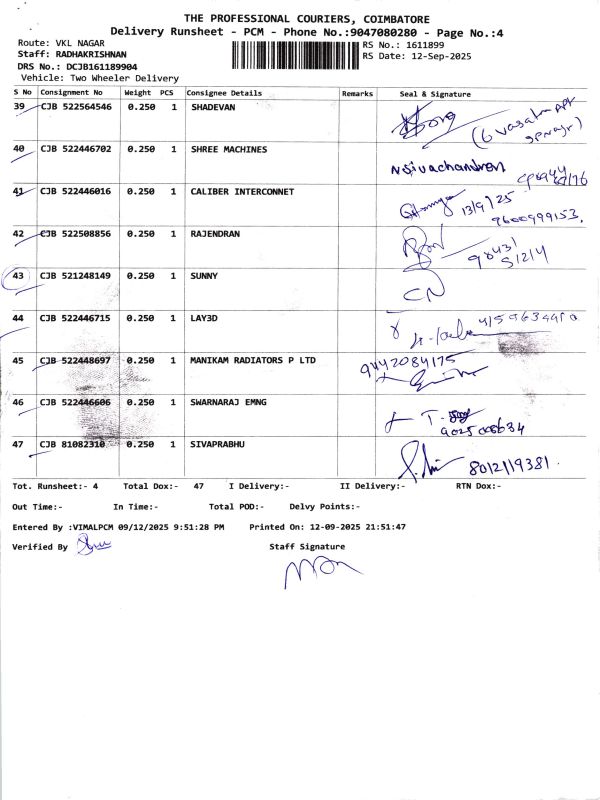 THE PROFESSIONAL COURIERS, COIMBATORE
Delivery Runsheet - PCM - Phone No.:9047080280 - Page No.:4
Route: VKL NAGAR
RS No.: 1611899
Staff: RADHAKRISHNAN
RS Date: 12-Sep-2025
DRS No.: DCJB161189904
Vehicle: Two Wheeler Delivery
S No Consignment No Weight PCS Consignee Details Remarks Seal & Signature
39 CJB 522564546 0.250 1 SHADEVAN
40 CJB 522446702 0.250 1 SHREE MACHINES
N. Sivachandren
41 CJB 522446016 0.250 1 CALIBER INTERCONNET
13/9/25
9600999153.
42 CJB 522508856 0.250 1 RAJENDRAN
43 CJB 521248149 0.250 1 SUNNY
CN
44 CJB 522446715 0.250 1 LAY3D
45 CJB 522448697 0.250 1 MANIKAM RADIATORS P LTD
9442084175
46 CJB 522446606 0.250 1 SWARNARAJ EMNG
47 CJB 81082310 0.250 1 SIVAPRABHU
8012119381.
Tot. Runsheet:- 4 Total Dox:- 47 I Delivery:- II Delivery:- RTN Dox:-
Out Time:- In Time:- Total POD:- Delvy Points:-
Entered By :VIMALPCM 09/12/2025 9:51:28 PM Printed On: 12-09-2025 21:51:47
Verified By Staff Signature